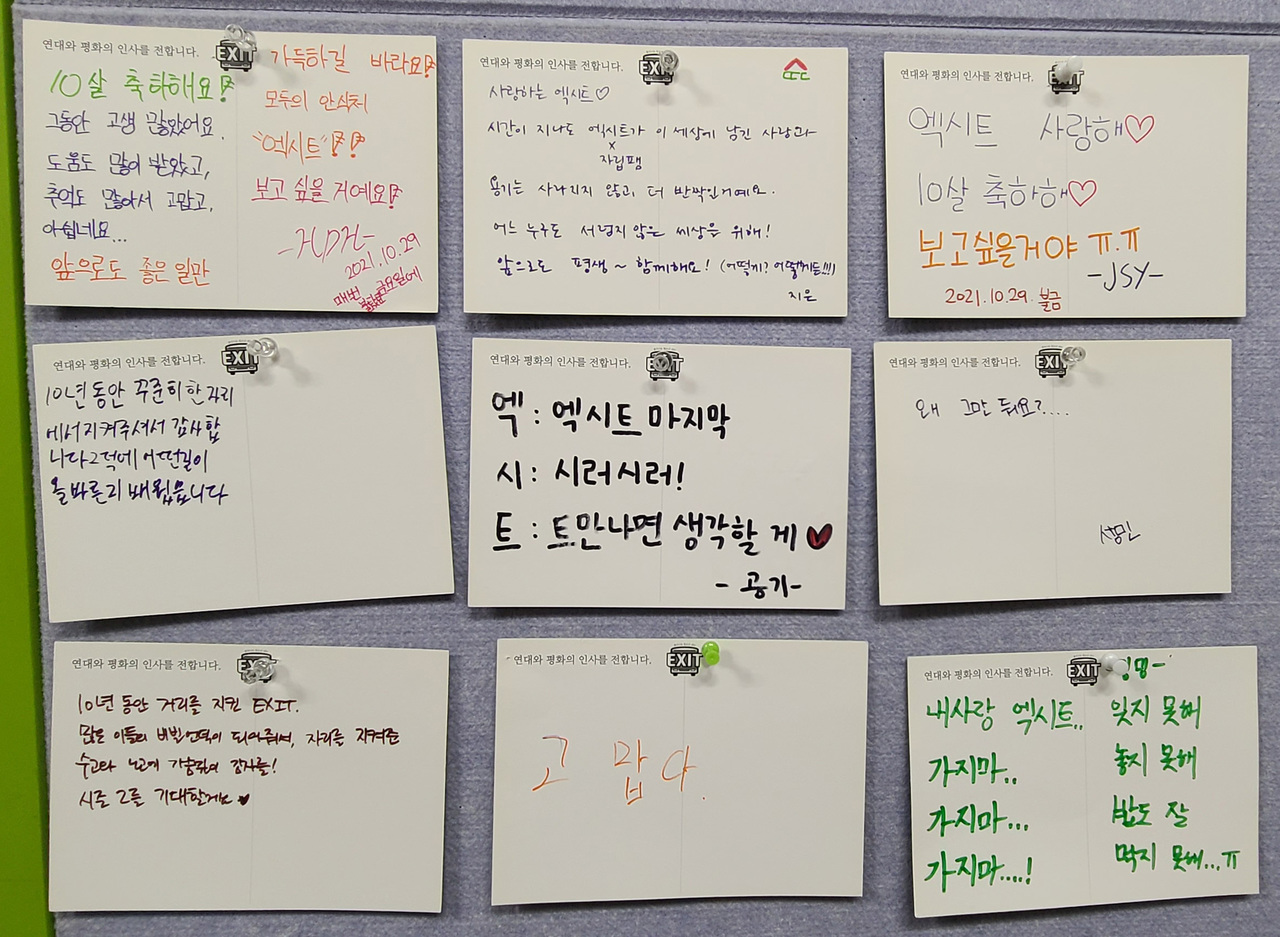 연대와 평화의 인사를 전합니다.
EXIT
10살 축하해요!
그동안 고생 많았어요.
도움도 많이 받았고,
추억도 많아서 고맙고,
아쉽네요...
앞으로도 좋은 일만
가득하길 바라요!
모두의 안식처
"엑시트"!!
보고 싶을 거예요!
2021.10.29
매번 금요일에
연대와 평화의 인사를 전합니다.
EXIT
사랑하는 엑시트♡
시간이 지나도 엑시트가 이 세상에 남긴 사랑과
x
자립팸
용기는 사라지지 않고 더 반짝일거예요.
어느 누구도 서럽지 않은 세상을 위해!
앞으로도 평생~ 함께해요! (어떻게? 어떻게든!!!)
지은
연대와 평화의 인사를 전합니다.
EXIT
엑시트 사랑해♡
10살 축하해♡
보고싶을거야 ㅠ.ㅠ
-JSY-
2021.10.29. 불금
연대와 평화의 인사를 전합니다.
EXIT
10년 동안 꾸준히 한 자리
에서 지켜주셔서 감사합
니다 2덕에 어떤길이
올바른지 배웠습니다
연대와 평화의 인사를 전합니다.
EXIT
엑 : 엑시트 마지막
시 : 시러시러!
트 : 트만나면 생각할 게♥
- 공기-
연대와 평화의 인사를 전합니다.
EXIT
왜 그만 둬요?....
연대와 평화의 인사를 전합니다.
EXIT
10년 동안 거리를 지킨 EXIT.
많은 이들의 비빌언덕이 되어줘서, 자리를 지켜준
수고와 노고에 가슴깊이 감사를!
시즌 2를 기대할게요♥
연대와 평화의 인사를 전합니다.
EXIT
고 맙 다.
연대와 평화의 인사를 전합니다.
EXIT
내사랑 엑시트..
가지마..
가지마...
가지마....!
잊지 못해
놓지 못해
밥도 잘
먹지 못해...ㅠ